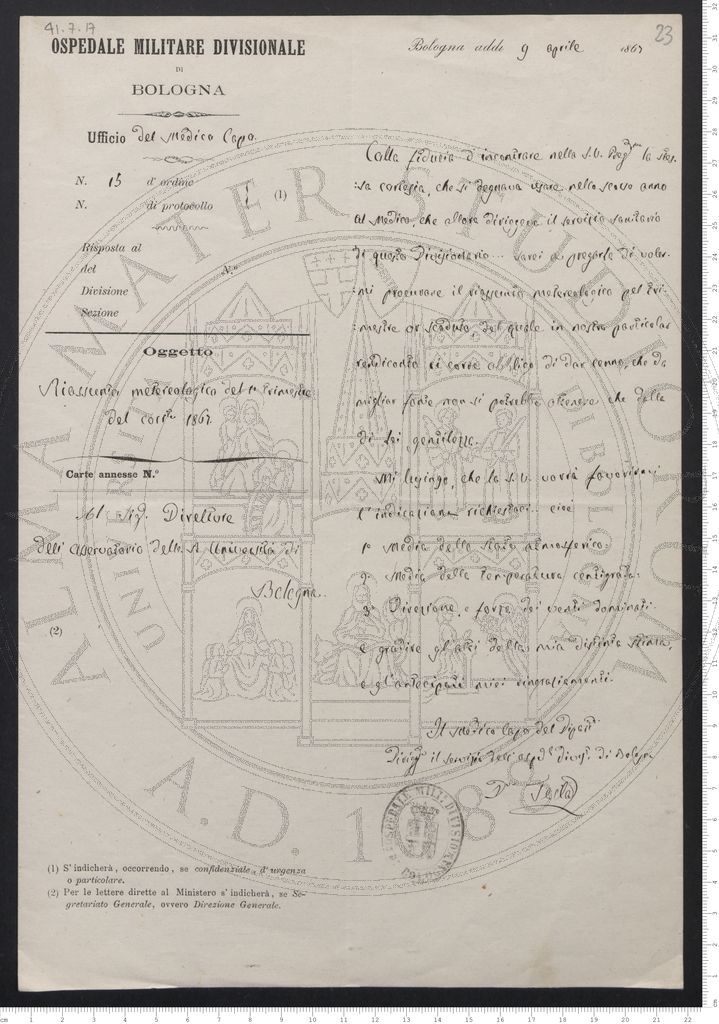 41.7.17
23
OSPEDALE MILITARE DIVISIONALE
DI
BOLOGNA
Bologna addi 9 aprile 1867
Ufficio del Medico Capo.
N. 15 d'ordine
N. di protocollo
(1)
Risposta al
del N.°
Divisione
Sezione
Oggetto
Riassunto metereologico del 1° Trimestre
del corr.e 1867
Carte annesse N.°
Al Sig. Direttore
dell'Osservatorio della R. Università di
Bologna.
(2)
Colla fiducia d'incontrare nella S.V. la stes-
:sa cortesia, che si degnava usare nello scorso anno
al Medico, che allora dirigeva il servizio sanitario
di questo Divisionario... sarei a pregarla di voler-
:mi procurare il riassunto metereologico pel tri-
:mestre or scaduto del quale in nostro particolar
rendiconto ci corre obbligo di dar cenno, che da
miglior fonte non si potrebbe ottenere che dalla
di Lei gentilezza.
Mi lusingo, che la S.V. vorrà favorirmi
l'indicazione cioè
1° Media dello stato atmosferico.
2° Media della temperatura centigrada.
3° Direzione, e forza dei venti dominanti.
e gradire gli atti della mia distinta stima,
e gl'anticipati miei ringraziamenti.
Il Medico Capo del Dipart.
Dirig.e il servizio dell'osped.e divis. di Bologna
D. Testa
OSPEDALE MILIT. DIVISIONALE
BOLOGNA
(1) S'indicherà, occorrendo, se confidenziale, d'urgenza
o particolare.
(2) Per le lettere dirette al Ministero s'indicherà, se Se-
gretariato Generale, ovvero Direzione Generale.
ALMA MATER STUDIORUM
A.D. 1088
UNIVERSITÀ DI BOLOGNA
cm 1 2 3 4 5 6 7 8 9 10 11 12 13 14 15 16 17 18 19 20 21 22